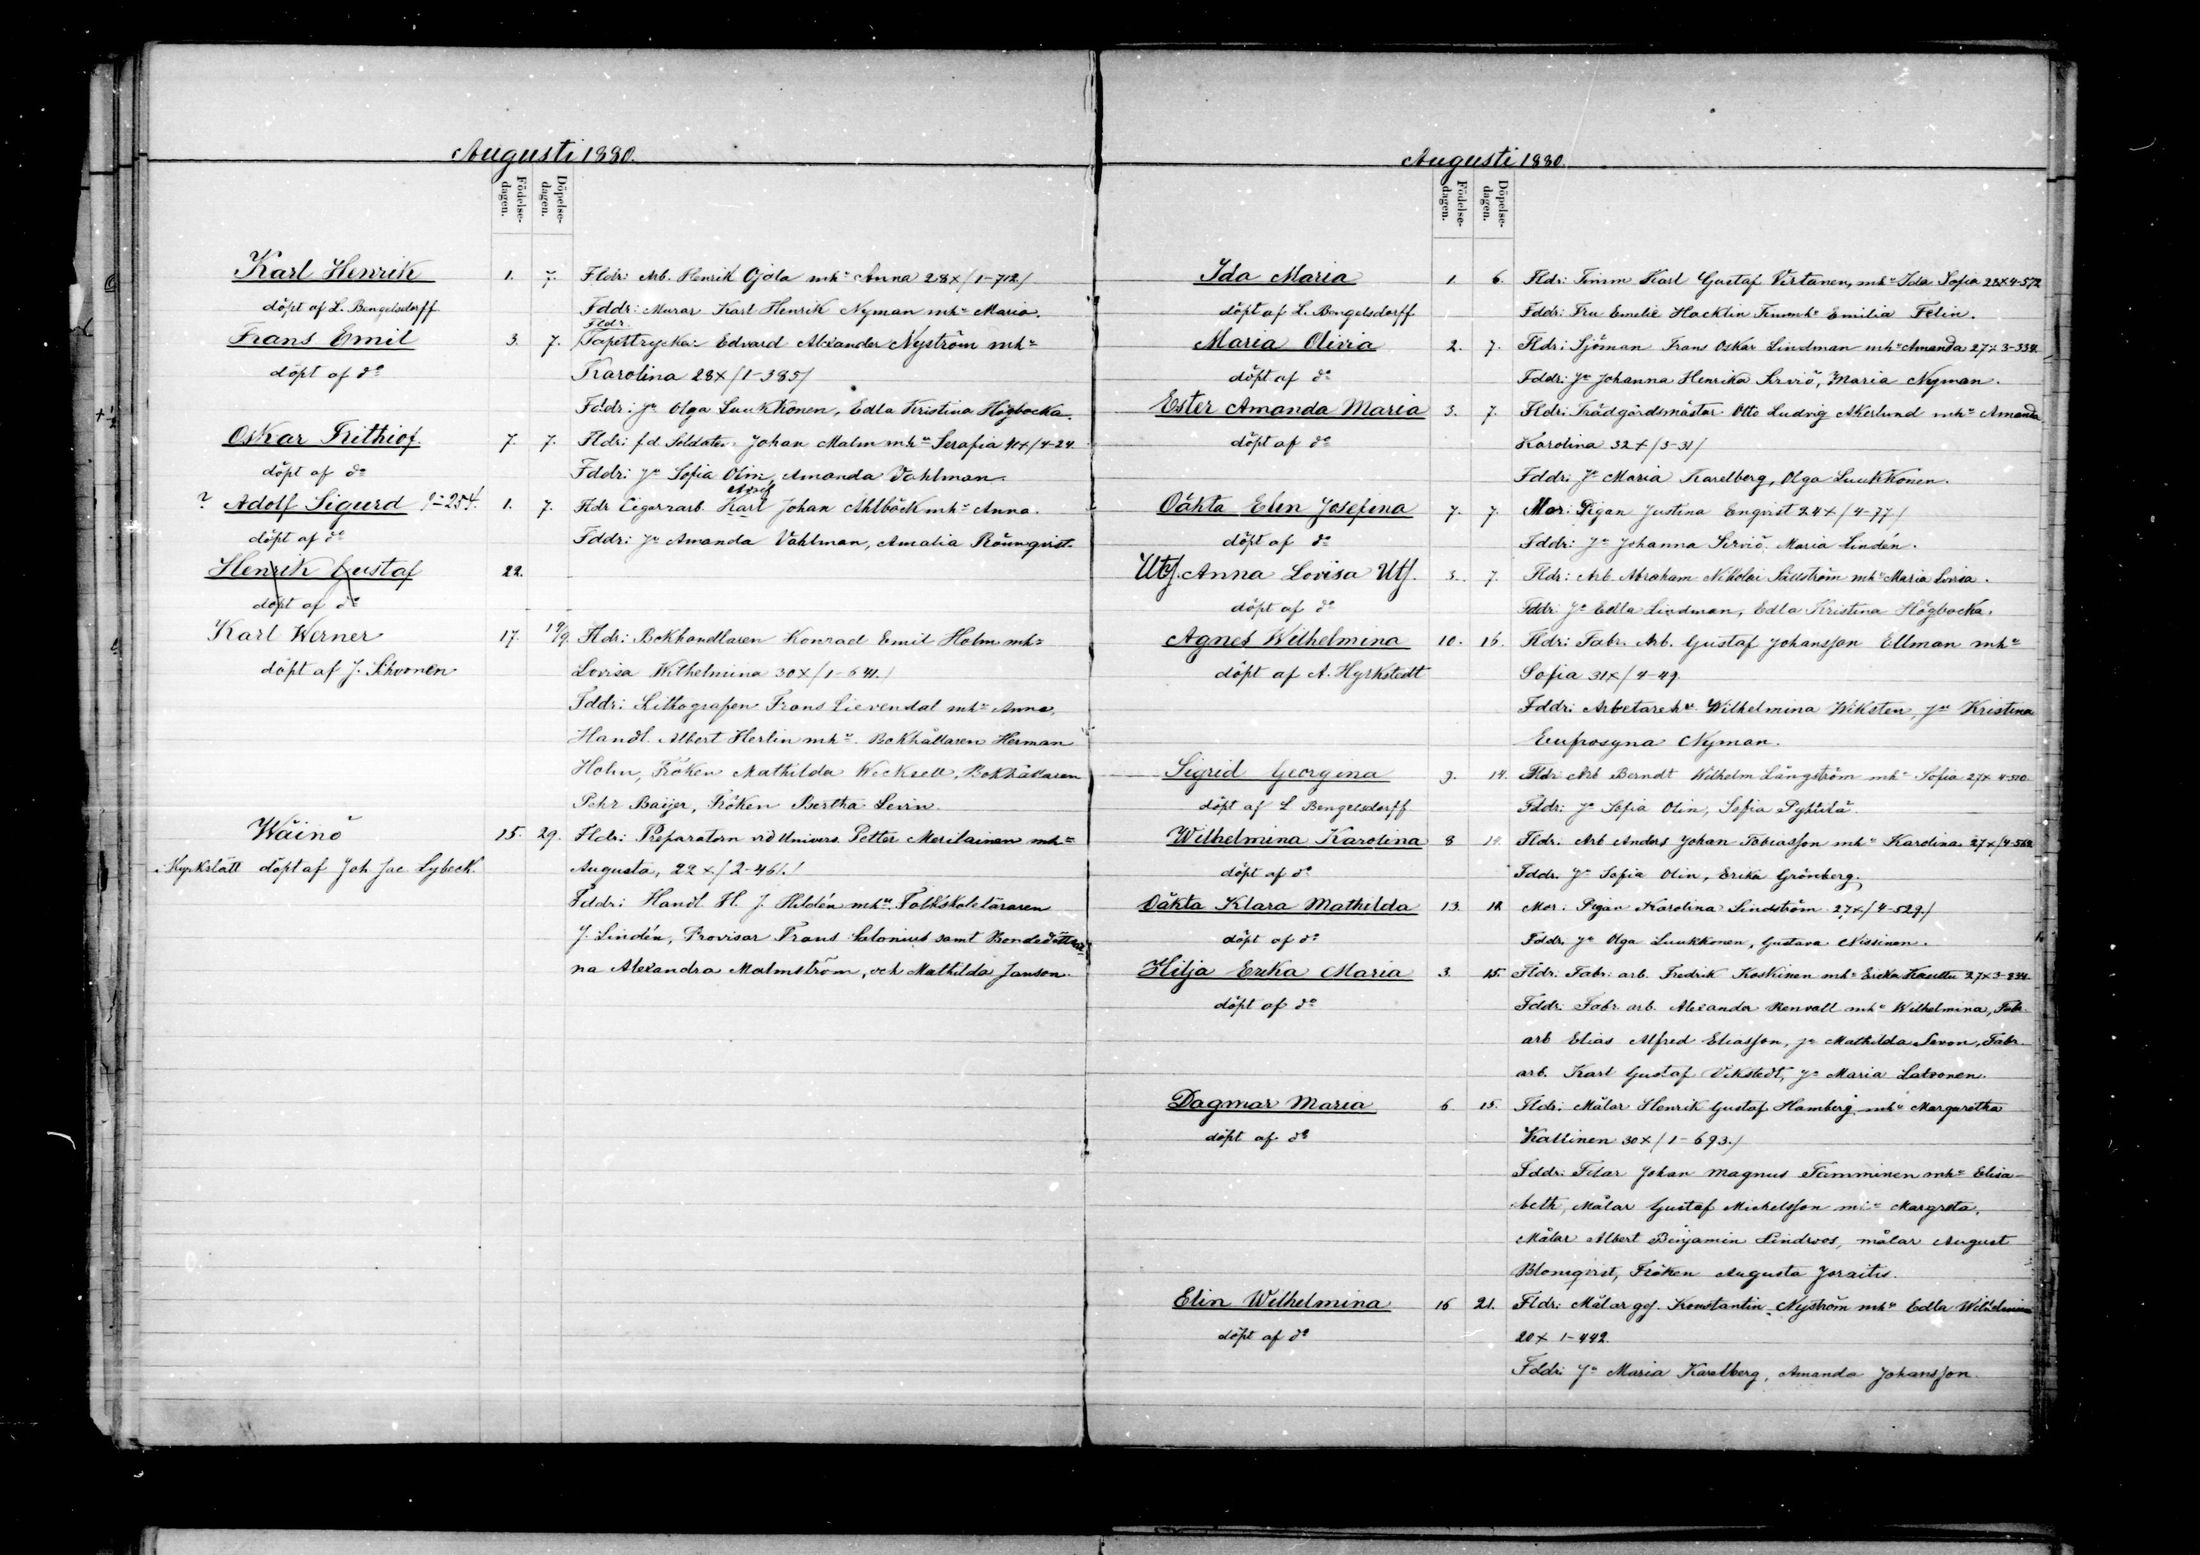 Augusti 1880.
Födelse-dagen. Döpelse-dagen.
Karl Henrik 1. 7. Fldr: Arb. Henrik Ojala mhu Anna 28x/1-712/
döpt af L. Bengelsdorff Fddr: Murar Karl Henrik Nyman mhu Maria.
Fldr.
Frans Emil 3. 7. Tapettrycka: Edvard Alexander Nyström mhu
döpt af do Karolina 28x/1-385/
Fddr: ju Olga Luukkonen, Edla Kristina Högbacka.
Oskar Frithiof 7. 7. Fldr: f.d. Soldaten Johan Malm mhu Serafia /4-24
döpt af do Fddr: ju Sofia Olin, Amanda Vahlman.
? Adolf Sigurd 1-254. 1. 7. Fldr Cigarrarb. Karl Johan Ahlbäck mhu Anna.
döpt af do Fddr: ju Amanda Vahlman, Amalia Rönnqvist.
Henrik Gustaf 22.
döpt af do
Karl Werner 17. 19/9. Fldr: Bokhandlaren Konrad Emil Holm mhu
döpt af J. Sihvonen Lovisa Wilhelmina 30x/1-641./
Fddr: Lithografen Frans Lievendal mhu Anna,
Handl. Albert Herlin mhu. Bokhållaren Herman
Holm, Fröken Mathilda Wecksell, Bokhållaren
Pehr Baijer, Fröken Bertha Levin.
Wäinö 15. 29. Fldr: Preparatorn vid Univers. Petter Meriläinen mhu
i Kyrkslätt döpt af Joh Jac Lybeck. Augusta, 22x/2-461./
Fddr: Handl H. J. Hildén mhu. Folkskoleläraren
J. Lindén, Provisor Frans Calonius samt Bondedöttrar
na Alexandra Malmström, och Mathilda Janson.
Augusti 1880.
Födelse-dagen. Döpelse-dagen.
Ida Maria 1. 6. Fldr: Timm Karl Gustaf Virtanen, mhu Ida Sofia 28x4-572
döpt af L. Bengelsdorff Fddr: Fru Emelie Hacklin Timmhu Emilia Felin.
Maria Olivia 2. 7. Fldr: Sjöman Frans Oskar Lindman mhu Amanda 27x3-334
döpt af do Fddr: ju Johanna Henrika Servió, Maria Nyman.
Ester Amanda Maria 3. 7. Fldr: Trädgårdsmästar Otto Ludvig Åkerlund mhu Amanda
döpt af do Karolina 32x/3-31/
Fddr: ju Maria Karelberg, Olga Luukkonen.
Oäkta Elin Josefina 7. 7. Mor: Pigan Justina Enqvist 24x/4-77/
döpt af do Fddr: ju Johanna Servió. Maria Lindén.
Utf. Anna Lovisa Utf. 3. 7. Fldr: Arb. Abraham Nikolai mhu Maria Lovisa.
döpt af do Fddr ju Edla Lindman, Edla Kristina Högbacka.
Agnes Wilhelmina 10. 15. Fldr: Fabr. Arb. Gustaf Johansson Ellman mhu
döpt af A. Hyrkstedt Sofia 31x/4-49.
Fddr: Arbetarehu. Wilhelmina Wiksten, ju Kristina
Eufrosyna Nyman.
Sigrid Georgina 9. 14. Fldr: Arb Berndt Wilhelm Långström mhu Sofia 27x 4-510
döpt af L Bengelsdorff Fddr: ju Sofia Olin, Sofia Pyhtilä.
Wilhelmina Karolina 8 14. Fldr. Arb Anders Johan Tobiasson mhu Karolina 27x/4-562
döpt af do Fddr. ju Sofia Olin, Erika Grönberg.
Oäkta Klara Mathilda 13. 18 Mor: Pigan Karolina Lindström 27x/4-529./
döpt af do Fddr. ju Olga Luukkonen, Gustava Nissinen.
Hilja Erika Maria 3. 15. Fldr: Fabr: arb. Fredrik Koskinen mhu Erika 27x3-234
döpt af do Fddr: Fabr. arb. Alexander Renvall mhu Wilhelmina, Fabr.
arb Elias Alfred Eliasson, ju Mathilda Savon, Fabr.
arb. Karl Gustaf Vikstedt, ju Maria Latvonen.
Dagmar Maria 6 15. Fldr. Målar Henrik Gustaf Hamberg mhu Margaretha
döpt af do Kallinen 30x/1-693./
Fddr: Filar Johan Magnus Tamminen mhu Elisa-
beth, Målar Gustaf Michelsson mhu Margreta,
Målar Albert Benjamin Lindroos, målar August
Blomqvist, Fröken Augusta
Elin Wilhelmina 16 21. Fldr: Målar ges. Konstantin Nyström mhu Edla Wilhelmina
döpt af do 20x 1-442.
Fddr: ju Maria Karelberg, Amanda Johansson.